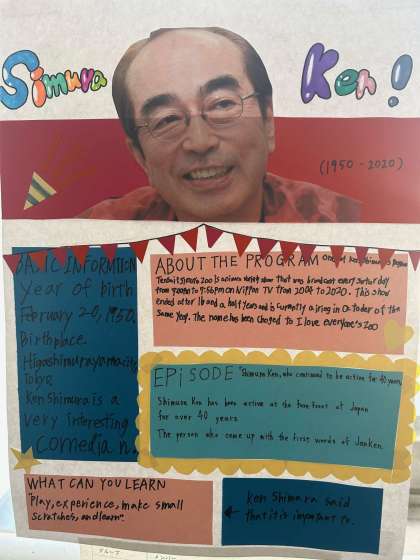 Simura Ken!
(1950-2020)
BASIC INFORMATION
Year of birth
February 20, 1950.
Birthplace.
Higashimurayama city
Tokyo
Ken Shimura is a
very interesting
comedian.
ABOUT THE PROGRAM One of Ken Shimura's
is a animal variety show that was broadcast every Saturday
from 7:00pm to 7:56pm on Nippon TV from 2004 to 2020. This show
ended after 16 and a half years and is currently airing in October of the
same year. The name has been changed to I love everyone's zoo
EPISODE "Shimura Ken, who continued to be active for 40 years,
Shimura Ken has been active at the forefront of Japan
for over 40 years
The person who came up with the first words of Janken.
WHAT CAN YOU LEARN
"Play, experience, make small
scratches, and learn".
← Ken Shimura said
that it is important to.